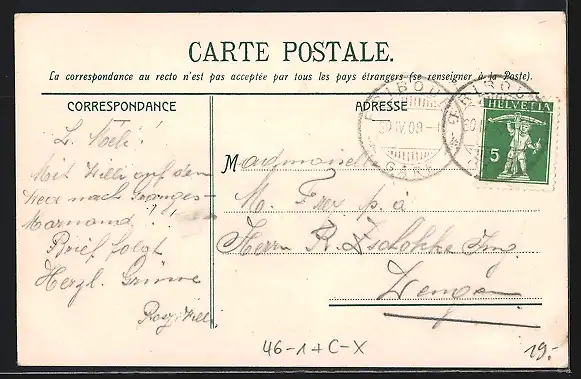 CARTE POSTALE.
La correspondance au recto n'est pas acceptée par tous les pays étrangers (se renseigner à la Poste).
CORRESPONDANCE
L. Noeli!
Mit Willi auf dem
nach Granges-
Marnand!!
Brief folgt
Herzl. Grüsse
Willi
ADRESSE
Mademoiselle
M. Frey p. à
Herrn R. Zschokke Ing.
Wengen
FRIBOURG
30 IV 09 - 1
GARE
FRIBOURG
HELVETIA
5
46-1+C-X
19.-